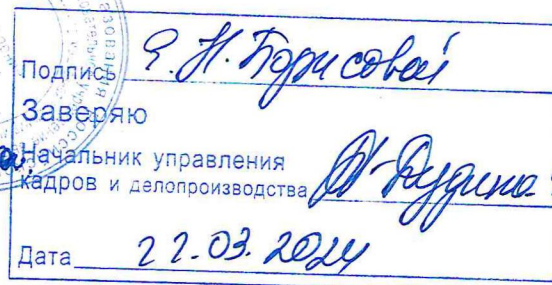 Подпись Я. Н. Борисовой
Заверяю
Начальник управления
кадров и делопроизводства Дудина
Дата 22.03.2024